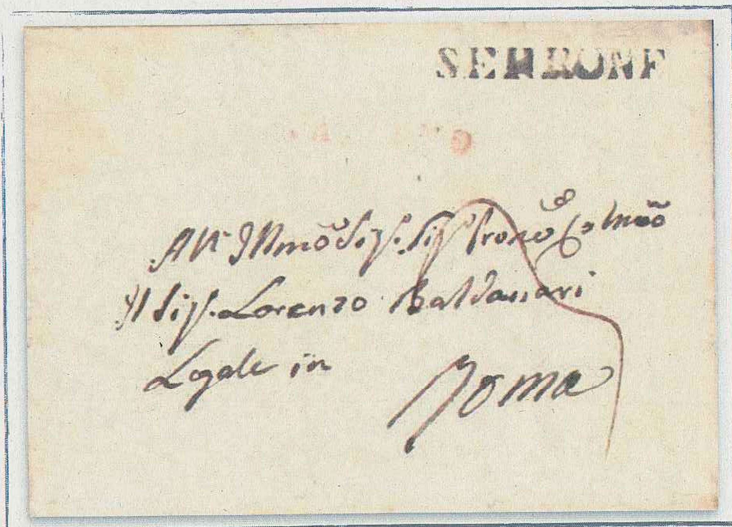 SERRONE
All' Illmo Sig. Sig. Prone Colmo
Il Sig. Lorenzo Baldassari
Legale in
Roma